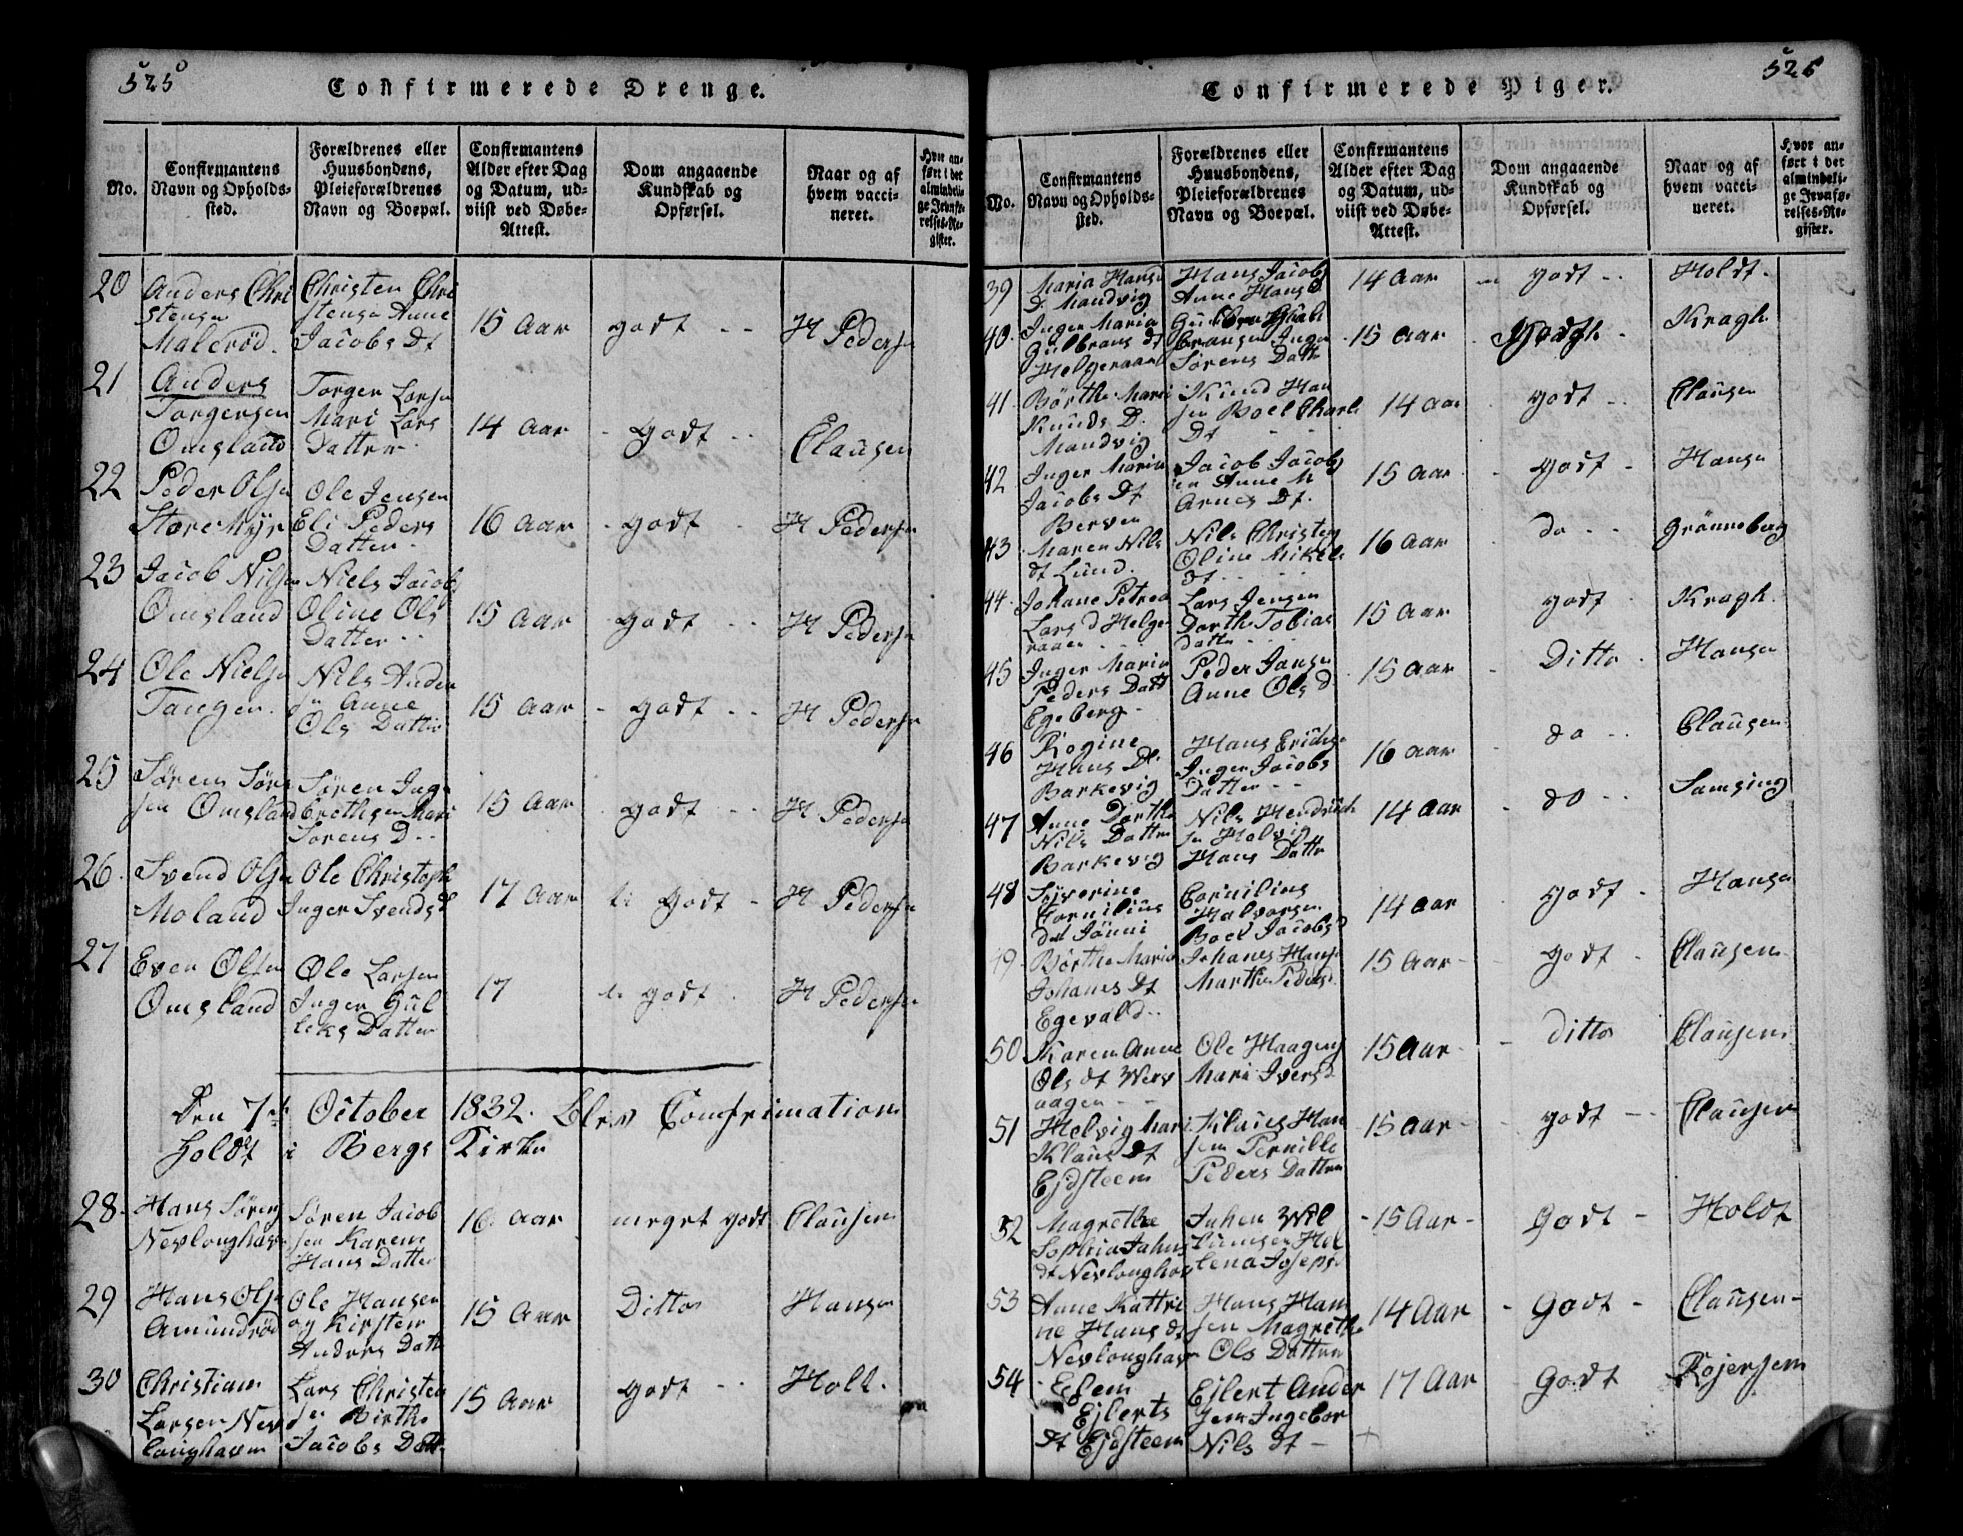 525
Confirmerede Drenge.
No.
Confirmantens
Navn og Opholds-
sted.
Forældrenes eller
Huusbondens,
Pleieforældrenes
Navn og Boepæl.
Confirmantens
Alder efter Dag
og Datum, ud-
viist ved Døbe-
Attest.
Dom angaaende
Kundskab og
Opførsel.
Naar og af
hvem vacci-
neret.
Hvor an-
ført i det
almindeli-
ge Jevnfø-
relses-Re-
gister.
20
Anders Chri
stensen
Malerød.
Christen Chri
stensen Anne
Jacobs Dt
15 Aar
godt
H Pedersn
21
Anders
Torgersen
Omsland
Torger Larsn
Mari Lars
Datter
14 Aar
Godt
Clausen
22
Peder Olsn
Store Myr
Ole Jensen
Eli Peders
Datter
16 Aar
godt
H Pedersn
23
Jacob Nilsn
Omsland
Niels Jacobs
Oline Ols
Datter
15 Aar
godt
H Pedersn
24
Ole Nielsn
Tangen.
Nils Ander
sn Anne
Ols Datter
15 Aar
godt
H Pedersn
25
Søren Sørn
sen Omsland
Søren Inge
brethsen Mari
Sørens D
15 Aar
godt
H Pedersn
26.
Svend Olsn
Moland
Ole Christoph
Inger Svends d
17 Aar
godt
H Pedersn
27
Even Olsen
Omsland
Ole Larsen
Inger Gul
leks Datter
17
godt
H Pedersn
Den 7de October 1832. Blev Confirmation
holdt i Bergs Kirke
28.
Hans Sørens
Nevlonghavn
Søren Jacob
sen Karen
Hans Datter
16 Aar
meget godt
Clausen
29
Hans Olsn
Amundrød
Ole Hansen
og Kirsten
Anders Datt
15 Aar
Ditto
Hansn
30
Christian
Larsen Nev
longhavn
Lars Christen
sn Birthe
Jacobs Datt
15 Aar
godt
Holt.
526
Confirmerede Piger.
No.
Confirmantens
Navn og Opholds-
sted.
Forældrenes eller
Huusbondens,
Pleieforældrenes
Navn og Boepæl.
Confirmantens
Alder efter Dag
og Datum, ud-
viist ved Døbe-
Attest.
Dom angaaende
Kundskab og
Opførsel.
Naar og af
hvem vacci-
neret.
Hvor an-
ført i det
almindeli-
ge Jevnfø-
relses-Re-
gister.
39
Maria Hans
D. Mandvig
Hans Jacobs
Anne Hans D
14 Aar
godt
Holdt.
40.
Inger Maria
Gulbrans dt
Helgeraaen
bransen Inger
Sørens Datt
15 Aar
Godt
Kragh
41.
Børthe Mari
Knuds D.
Mandvig
Knud Han
sn Boel Charls
Dt
14 Aar
godt
Clausen
42
Inger Maria
Jacobs Dt
Berven
Jacob Jacobs
en Anne M
Arnes Dt.
15 Aar
godt
Hansn
43
Maren Nils
dt Lund.
Nils Christen
Oline Mikels
Dt
16 Aar
do
Grønneberg
44.
Johane Petrea
Lars d Helge
raaen
Lars Jensen
Dorth Tobias
datt
15 Aar
godt
Kragh.
45
Inger Maria
Peders Datt
Egeberg
Peder Jansn
Anne Ols d
15 Aar
Ditto
Hansn
46
Rogine
Hans Dt.
Barkevig
Hans Erichs
Inger Jacobs
Datter
16 Aar
do
Clausen
47
Anne Dorthe
Nils Datter
Barkevig
Nils Hendrich
sn Helvig
Hans Datt
14 Aar
do
Samsing
48
Syverine
Cornilius
dat Jønni
Cornilius
Halvorsen
Boel Jacobs d
14 Aar
godt
Hansn
49.
Børthe Maria
Johanes Dt
Egevald
Johanes Hans
Marthe Peders
15 Aar
godt
Clausen
50
Karen Anne
Ols dt Werv
aagen
Ole Haagens
Mari Ivers d
15 Aar
ditto
Clausen
51
Helvig Mari
Klaus dt
Ejdsteen
Klaues Han
sen Pernille
Peders Datter
15 Aar
godt
Clausen
52
Magrethe
Sophia Jahns
dt Nevlonghavn
Jahen Wil
lumsen Hel
lena Joseps
15 Aar
Godt
Holdt
53
Anne Kattri
ne Hans dt
Nevlonghavn
Hans Han
sen Magrethe
Ols Datter
14 Aar
Godt
Clausen
54
Elen
Ejlerts
dt Ejdsteen
Ejlert Ander
sen Ingebor
Nils dt
17 Aar
Godt
Røjersen